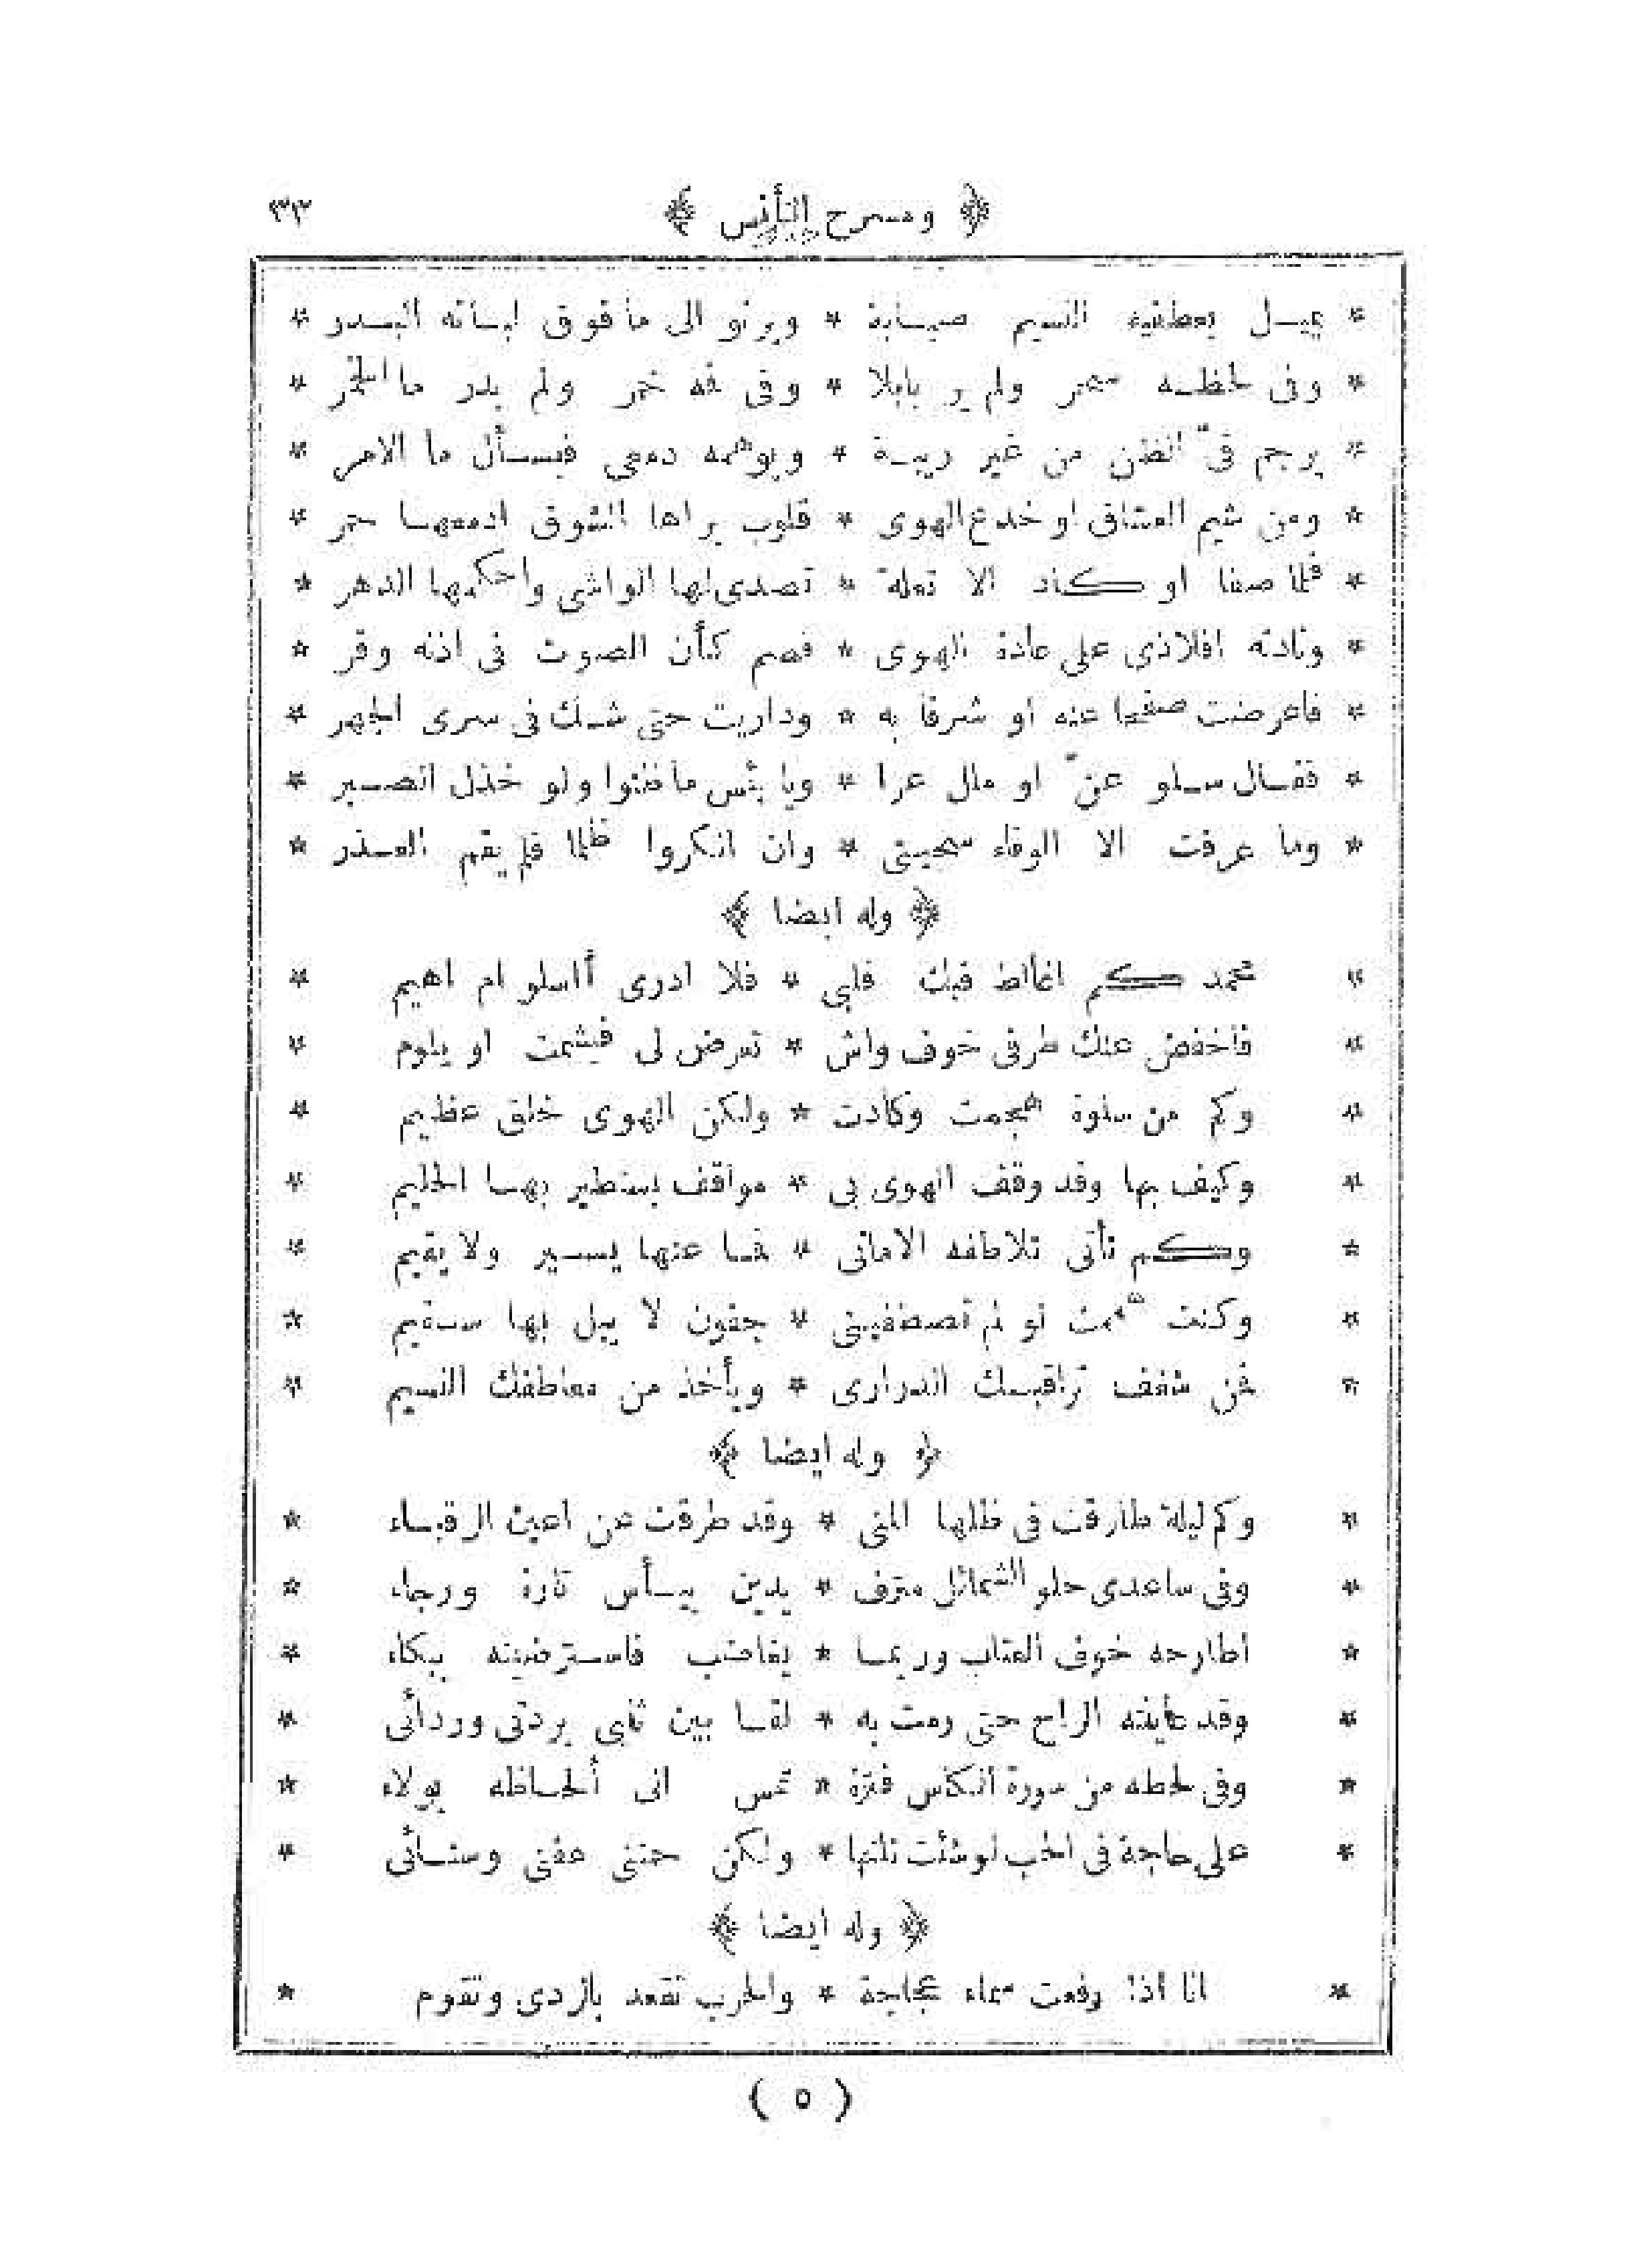 ﴿ ومسرح التأنس ﴾ ٣٣
* يميـل بعطفيه النسيم صبـابة * ويرنو الى ما فوق لبـاته البـدر *
* وفى لحظـه سحر ولم ير بابلا * وفى فه خمر ولم يدر ما الخمر *
* يرجم فىّ الظن من غير ريبـة * ويوهمه دمعى فيسـأل ما الامر *
* ومن شيم العشاق او خدع الهوى * قلوب براها الشوق ادمعهـا حمر *
* فلما صفا او كاد الا تعلة * تصدى لها الواشى واحكمها الدهر *
* ونادته افلاذى على عادة الهوى * فصم كأن الصوت فى اذنه وقر *
* فاعرضت صفحا عنه او شرقا به * وداريت حتى شـك فى سرى الجهر *
* فقـال سـلو عنّ او ملل عرا * ويا بئس ما ظنوا ولو خذل الصـبر *
* وما عرفت الا الوفاء سجيتى * وان انكروا ظلما فلم يقم العـذر *
﴿ وله ايضا ﴾
* محمد كم اغالط فيك قلبى * فلا ادرى أاسلو ام اهيم *
* فاخفض عنك طرفى خوف واش * تعرض لى فيشمت او يلوم *
* وكم من سلوة هجمت وكادت * ولكن الهوى خلق عظيم *
* وكيف بها وقد وقف الهوى بى * مواقف يستطير بهـا الحليم *
* وكم تأتى تلاطفه الامانى * فمـا عنها يسـير ولا يقيم *
* وكنت هممت لو لم تصطفينى * جفون لا يبل بها سـقيم *
* فمن شغف تراقبـك الدرارى * ويأخذ من معاطفك النسيم *
﴿ وله ايضا ﴾
* وكم ليلة طارقت فى ظلها المنى * وقد طرقت عن اعين الرقبـاء *
* وفى ساعدى حلو الشمائل مترف * يدين بيـأس تارة ورجاء *
* اطارحه خوف العتاب وربمـا * يغاضب فاسـترضيته ببكاء *
* وقد عابثته الراح حتى رمت به * لقـا بين ثنيى بردتى وردائى *
* وفى لحظه من سورة الكاس فترة * تمس الى ألحـاظه بولاء *
* على حاجة فى الحب لو شئت نلتها * ولكن حمتنى عفتى وسنـائى *
﴿ وله ايضا ﴾
* انا اذا رفعت سماء عجاجة * والحرب تقعد بالردى وتقوم *
( ٥ )